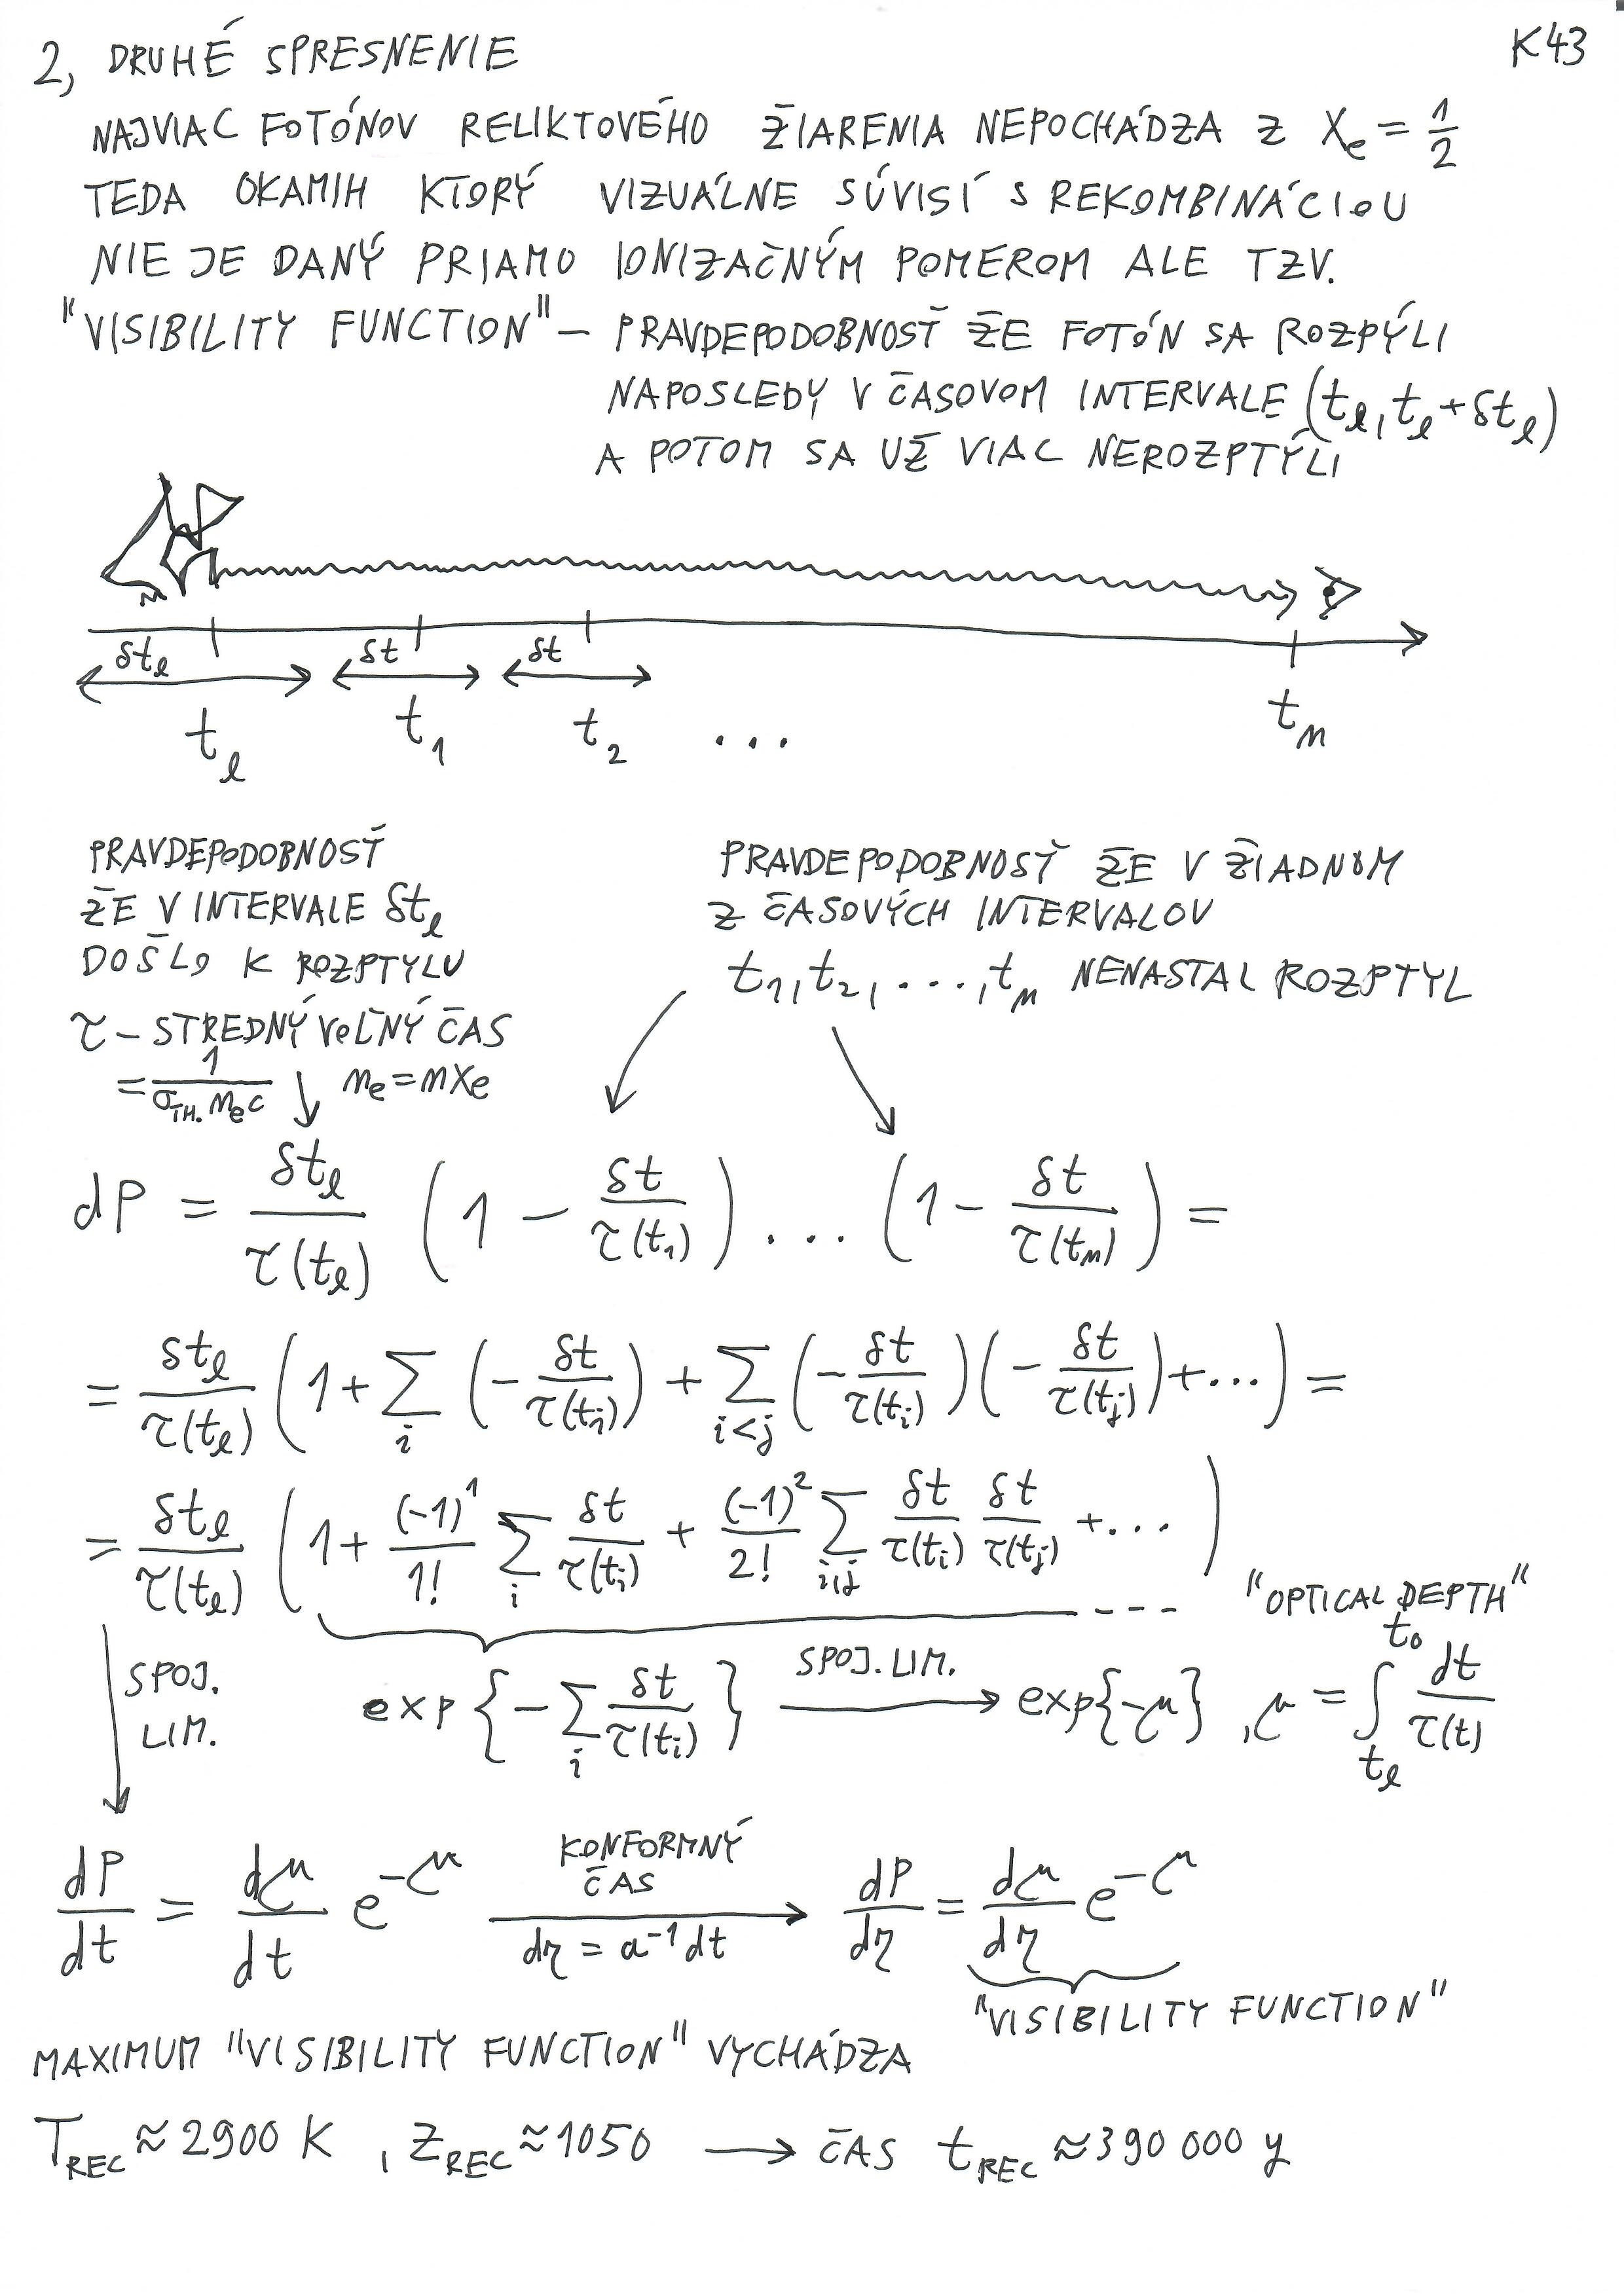 K43
2, DRUHÉ SPRESNENIE
NAJVIAC FOTÓNOV RELIKTOVÉHO ŽIARENIA NEPOCHÁDZA Z Xe = 1/2
TEDA OKAMIH KTORÝ VIZUÁLNE SÚVISÍ S REKOMBINÁCIOU
NIE JE DANÝ PRIAMO IONIZAČNÝM POMEROM ALE TZV.
"VISIBILITY FUNCTION" – PRAVDEPODOBNOSŤ ŽE FOTÓN SA ROZPÝLI
NAPOSLEDY V ČASOVOM INTERVALE (tℓ, tℓ + δtℓ)
A POTOM SA UŽ VIAC NEROZPTÝLI
δtℓ δt δt
tℓ t₁ t₂ ... tₙ
PRAVDEPODOBNOSŤ
ŽE V INTERVALE δtℓ
DOŠLO K ROZPTYLU
τ – STREDNÝ VOĽNÝ ČAS
= 1/(σ_TH. nₑ c) ↓ nₑ = n Xe
PRAVDEPODOBNOSŤ ŽE V ŽIADNOM
Z ČASOVÝCH INTERVALOV
t₁, t₂, ..., tₙ NENASTAL ROZPTYL
dP = δtℓ/τ(tℓ) (1 – δt/τ(t₁)) ... (1 – δt/τ(tₙ)) =
= δtℓ/τ(tℓ) (1 + ∑_i (–δt/τ(tᵢ)) + ∑_{i<j} (–δt/τ(tᵢ))(–δt/τ(tⱼ)) + ...) =
= δtℓ/τ(tℓ) (1 + (–1)¹/1! ∑_i δt/τ(tᵢ) + (–1)²/2! ∑_{i,j} δt/τ(tᵢ) δt/τ(tⱼ) + ...)
"OPTICAL DEPTH"
SPOJ.
LIM.
exp{–∑_i δt/τ(tᵢ)} SPOJ. LIM. → exp{–μ} , μ = ∫_{tℓ}^{t₀} dt/τ(t)
dP/dt = dμ/dt e^{–μ} KONFORMNÝ ČAS dη = a⁻¹dt → dP/dη = dμ/dη e^{–μ}
"VISIBILITY FUNCTION"
MAXIMUM "VISIBILITY FUNCTION" VYCHÁDZA
T_REC ≈ 2900 K , Z_REC ≈ 1050 → ČAS t_REC ≈ 390 000 y